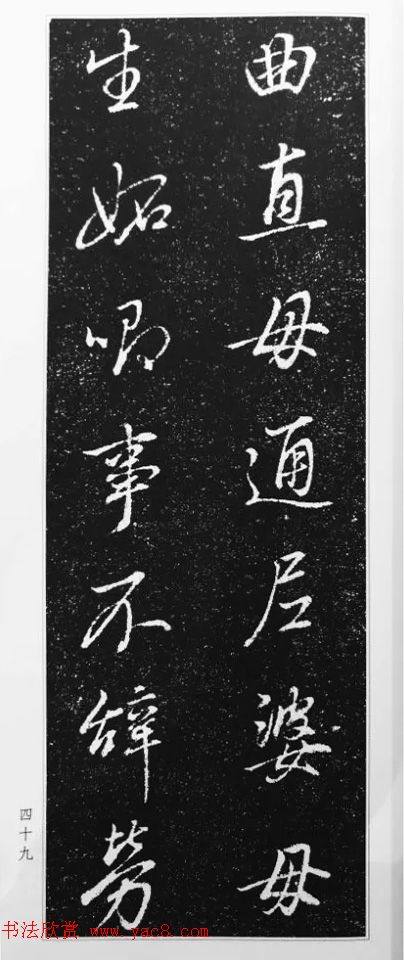 曲直毋通尼婆毋
生妬唧事不辭勞
四十九
书法欣赏 www.yac8.com